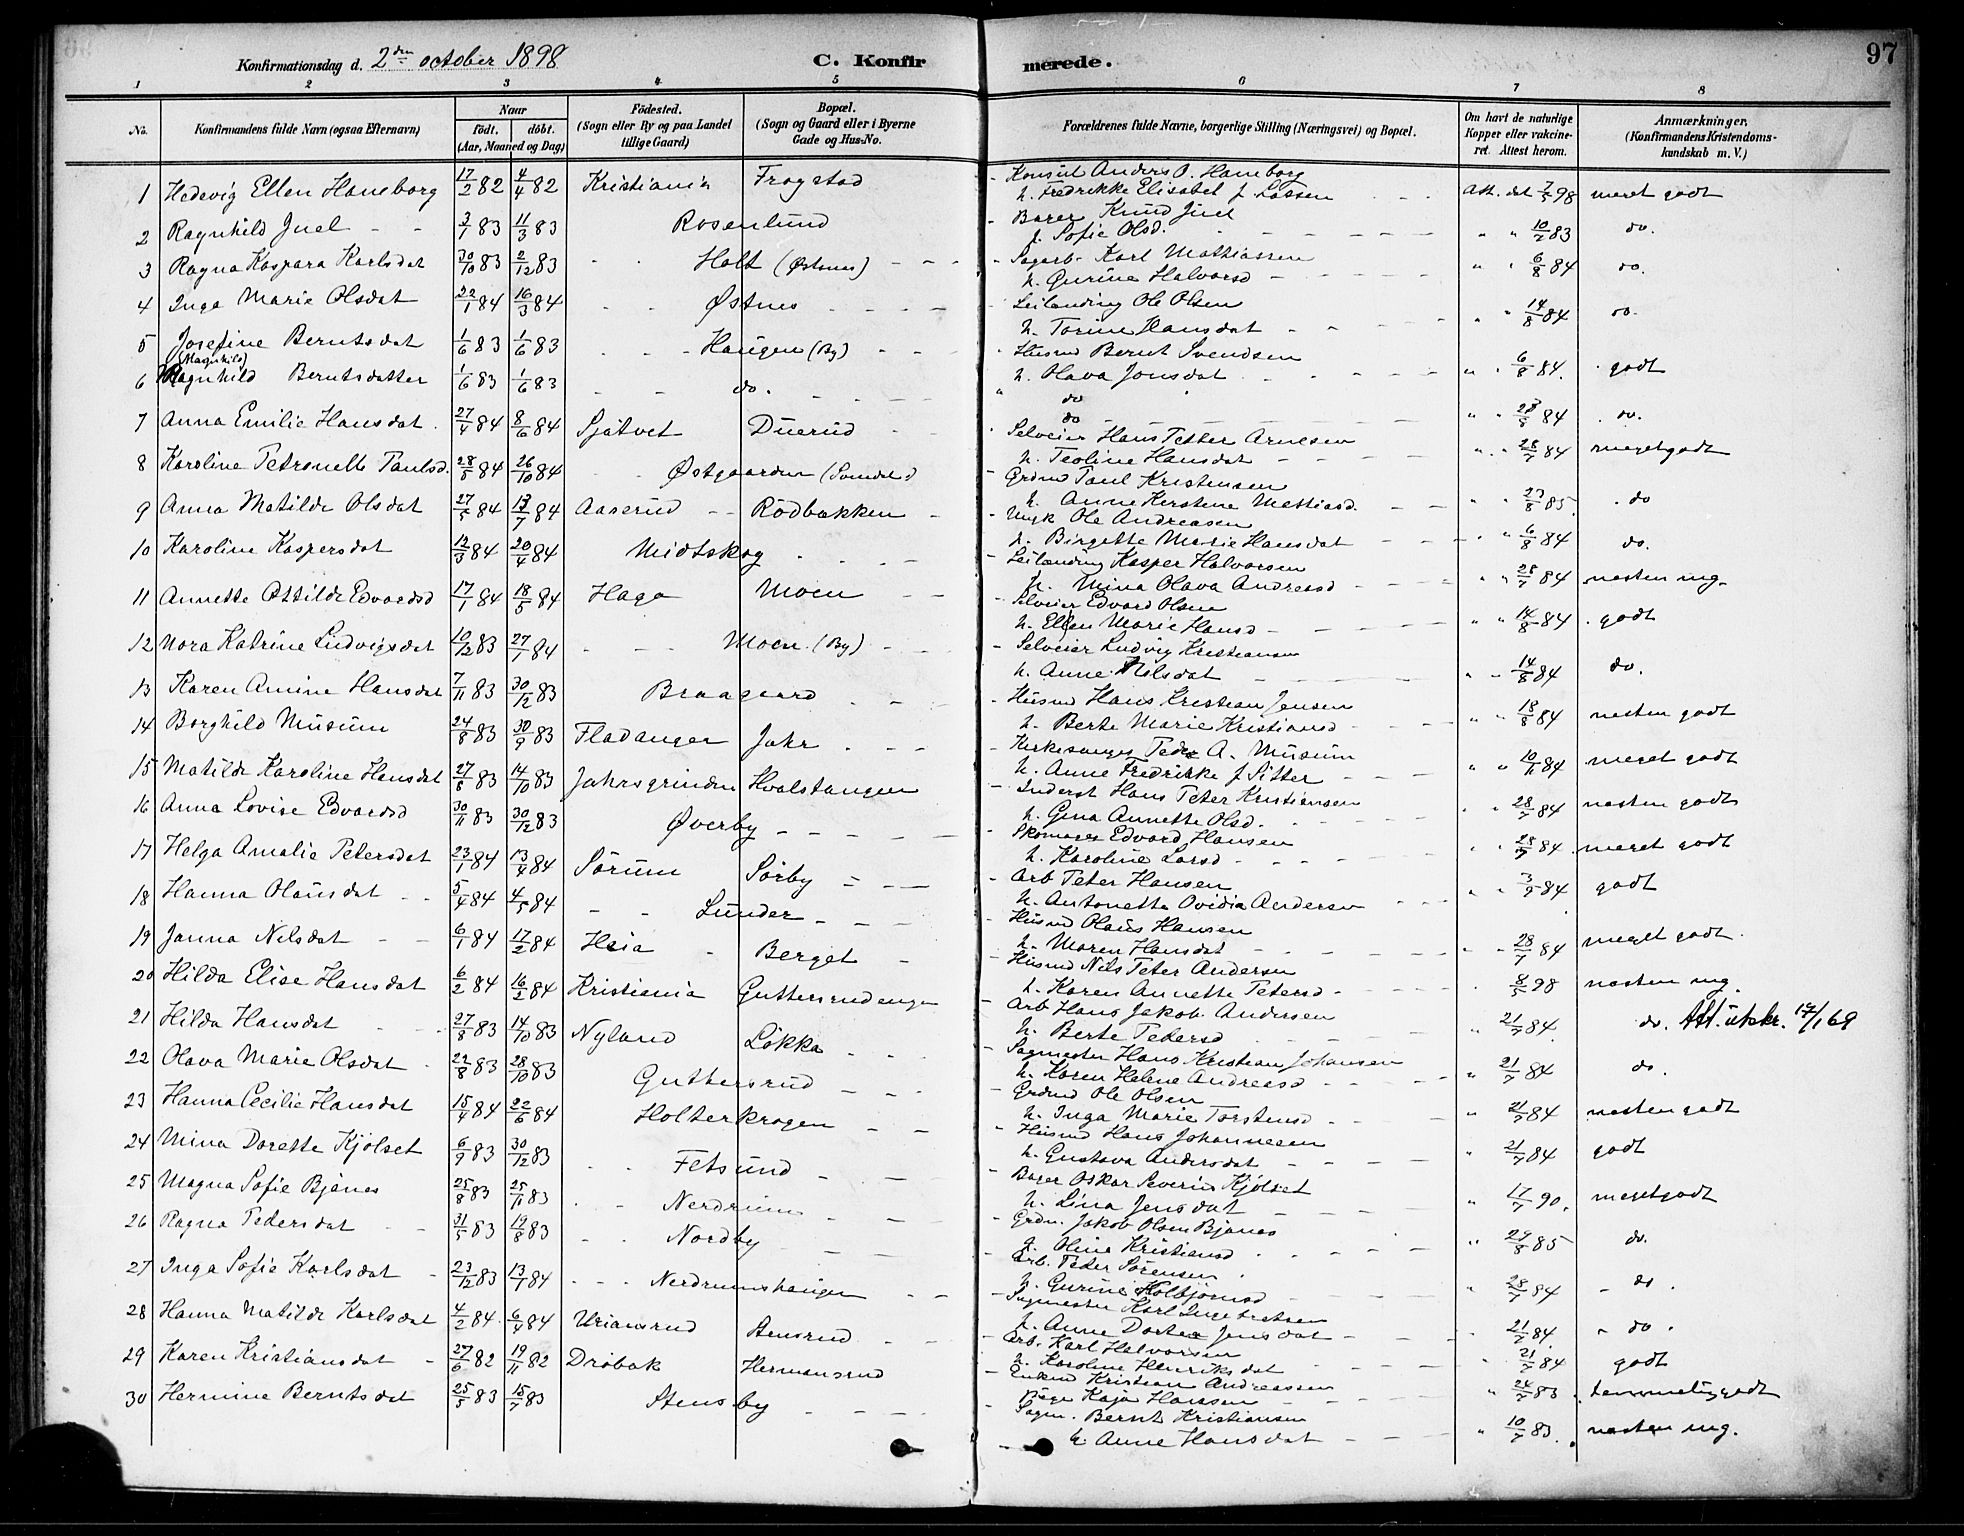 Konfirmationsdag d. 2den october 1898
C. Konfirmerede.
97
1 2 3 4 5 6 7 8
No.
Konfirmandens fulde Navn (ogsaa Efternavn)
Naar
födt. döbt.
(Aar, Maaned og Dag)
Födested.
(Sogn eller By og paa Landet tillige Gaard)
Bopæl.
(Sogn og Gaard eller i Byerne Gade og Hus-No.
Forældrenes fulde Navne, borgerlige Stilling (Næringsvei) og Bopæl.
Om havt de naturlige Kopper eller vakcineret. Attest herom.
Anmærkninger.
(Konfirmandens Kristendomskundskab m. V.)
1 Hedevig Ellen Haneborg 17/2 82 4/4 82 Kristiania Frogstad - Konsul Anders O. Haneborg
h. Fredrikke Elisabet f. Lassen Att. dat 7/5 98 meget godt
2 Ragnhild Juel 3/1 83 11/3 83 Rosenlund - Bager Knud Juel
f. Sofie Olsd. 10/2 83 do.
3 Ragna Kaspara Karlsdat 30/10 83 2/12 83 Holt (Østnes) - Sagarb. Karl Mathiassen
h. Gurine Halvorsd 6/8 84 do.
4 Inga Marie Olsdat 22/1 84 16/3 84 Østnes - Leilænding Ole Olsen
h. Torine Hansdat 14/8 84 do.
5 Josefine Berntsdat 1/6 83 1/6 83 Haugen (By) - Husmd Bernt Svendsen
h. Olava Jonsdat 6/8 84. godt
(Magnhild)
6 Ragnhild Berntsdatter 1/6 83 1/6 83 do. " do
do 28/5 84 do.
7 Anna Emilie Hansdat 27/4 84 8/6 84 Sjatvet Duerud - Selveier Hans Petter Arnesen
h. Teoline Hansdat 28/7 84 meget godt
8 Karoline Petronelle Paulsd. 28/5 84 26/10 84 Østgaarden - Grdmd Paul Kristensen
h. Anne Kerstene Mathiasd. 27/8 85. do
9 Anna Matilde Olsdat 27/5 84 13/7 84 Aaserud Rödbakken - Ungk Ole Andreasen
h. Birgette Marie Hansdat 6/8 84 do.
10 Karoline Kaspersdat 12/3 84 20/4 84 Midtskog - Leilænding Kasper Halvorsen
h. Mina Olava Andreasd 28/7 84 næsten mg.
11 Annette Ottilde Edvardsd 17/1 84 18/5 84 Haga Moen - Selveier Edvard Olsen
h. Ellen Marie Hansd 14/8 84 godt
12 Nora Katrine Ludvigsdat 10/12 83 27/1 84 Moen (By) - Selveier Ludvig Kristiansen
h. Anne Nilsdat 14/8 84 do.
13 Karen Amine Hansdat 7/11 83 30/12 83 Braagaard - Husmd Hans Kristian Jensen
h. Berte Marie Kristiansd 18/8 84 næsten godt
14 Borghild Musum 24/8 83 30/9 83 Fladanger Jahr - Kirkesanger Peder A. Musum
h. Anne Fredrikke f Sitter 10/11 84 meget godt
15 Matilde Karoline Hansdat 27/8 83 14/10 83 Jahrsgrinden Hvalstangen - Inderst Hans Peter Kristiansen
h. Gina Annette Olsd. 28/7 84 næsten godt
16 Anna Lovise Edvardsd 30/11 83 30/12 83 Øverby - Skomager Edvard Hansen
h. Karoline Larsd 28/7 84. meget godt
17 Helga Amalie Petersdat 23/1 84 13/4 84 Sörum Sörby - Arb Peter Hansen
h. Antonette Ovidia Andersen 3/9 84 godt
18 Hanna Olausdat 5/4 84 4/5 84 Lunder - Husmd Olaus Hansen
h. Maren Hansdat 28/7 84 meget godt.
19 Janna Nilsdat 6/1 84 17/2 84 Heia Berget - Husmd Nils Peter Andersen
h. Karen Annette Petersd 8/5 98 næsten mg.
20 Hilda Elise Hansdat 6/2 84 16/2 84 Kristiania Guttersrudengen - Arb Hans Jakob Andersen
h. Berte Pedersd 21/7 84. do. Att. utskr. 17/1 69
21 Hilda Hansdat 27/8 83 14/10 83 Nyland Lökka - Sagmester Hans Kristian Johansen
h. Karen Helene Andreasd 21/7 84 do.
22 Olava Marie Olsdat 22/8 83 28/10 83 Guttersrud - Grdmd Ole Olsen
h. Inga Marie Torstensd 21/7 84 næsten godt
23 Hanna Cecilie Hansdat 15/4 84 22/6 84 Holterkrogen - Husmd Hans Johannesen
h. Gustava Andersdat 21/7 84 godt
24 Mina Dorette Kjölset 6/9 83 30/12 83 Fetsund - Bager Oskar Severin Kjölset
h. Lina Jensdat 17/7 90. meget godt
25 Magna Sofie Bjanes 25/8 83 25/11 83 Nerdrum - Grdm. Jakob Olsen Bjanes
h. Oline Kristiansd 29/8 85 do.
26 Ragna Pedersdat 31/5 83 19/8 83 Nordby - Arb. Peder Sörensen
h. Gurine Kolbjörnsd 28/7 84 do.
27 Inga Sofie Karlsdat 23/12 83 13/1 84 Nerdrumshaugen - Sagmester Karl Ingebretsen
h. Anne Dortea Jensdat 21/7 84. do.
28 Hanna Matilde Karlsdat 4/2 84. 6/4 84 Uriansrud Stensrud - Arb. Karl Halvorsen
h. Karoline Henriksdat 21/7 84 godt
29 Karen Kristiansdat 27/6 82 19/11 82 Dröbak Hermansrud - Enkmd Kristian Andreassen
Pige Kaja Hansen 24/7 83. temmelig godt
30 Hermine Berntsdat 25/5 83 15/7 83 Stensby - Sagm. Bernt Kristiansen
h. Anne Hansdat 10/7 83. næsten mg.